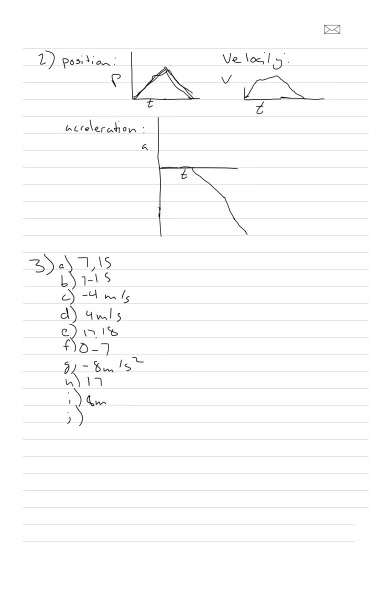 2) position: Velocity:
P V
t t
acceleration:
a
t
3) a) 7,15
b) 7-15
c) -4 m/s
d) 4m/s
e) 17,18
f) 0-7
g) -8m/s²
h) 17
i) 8m
j)